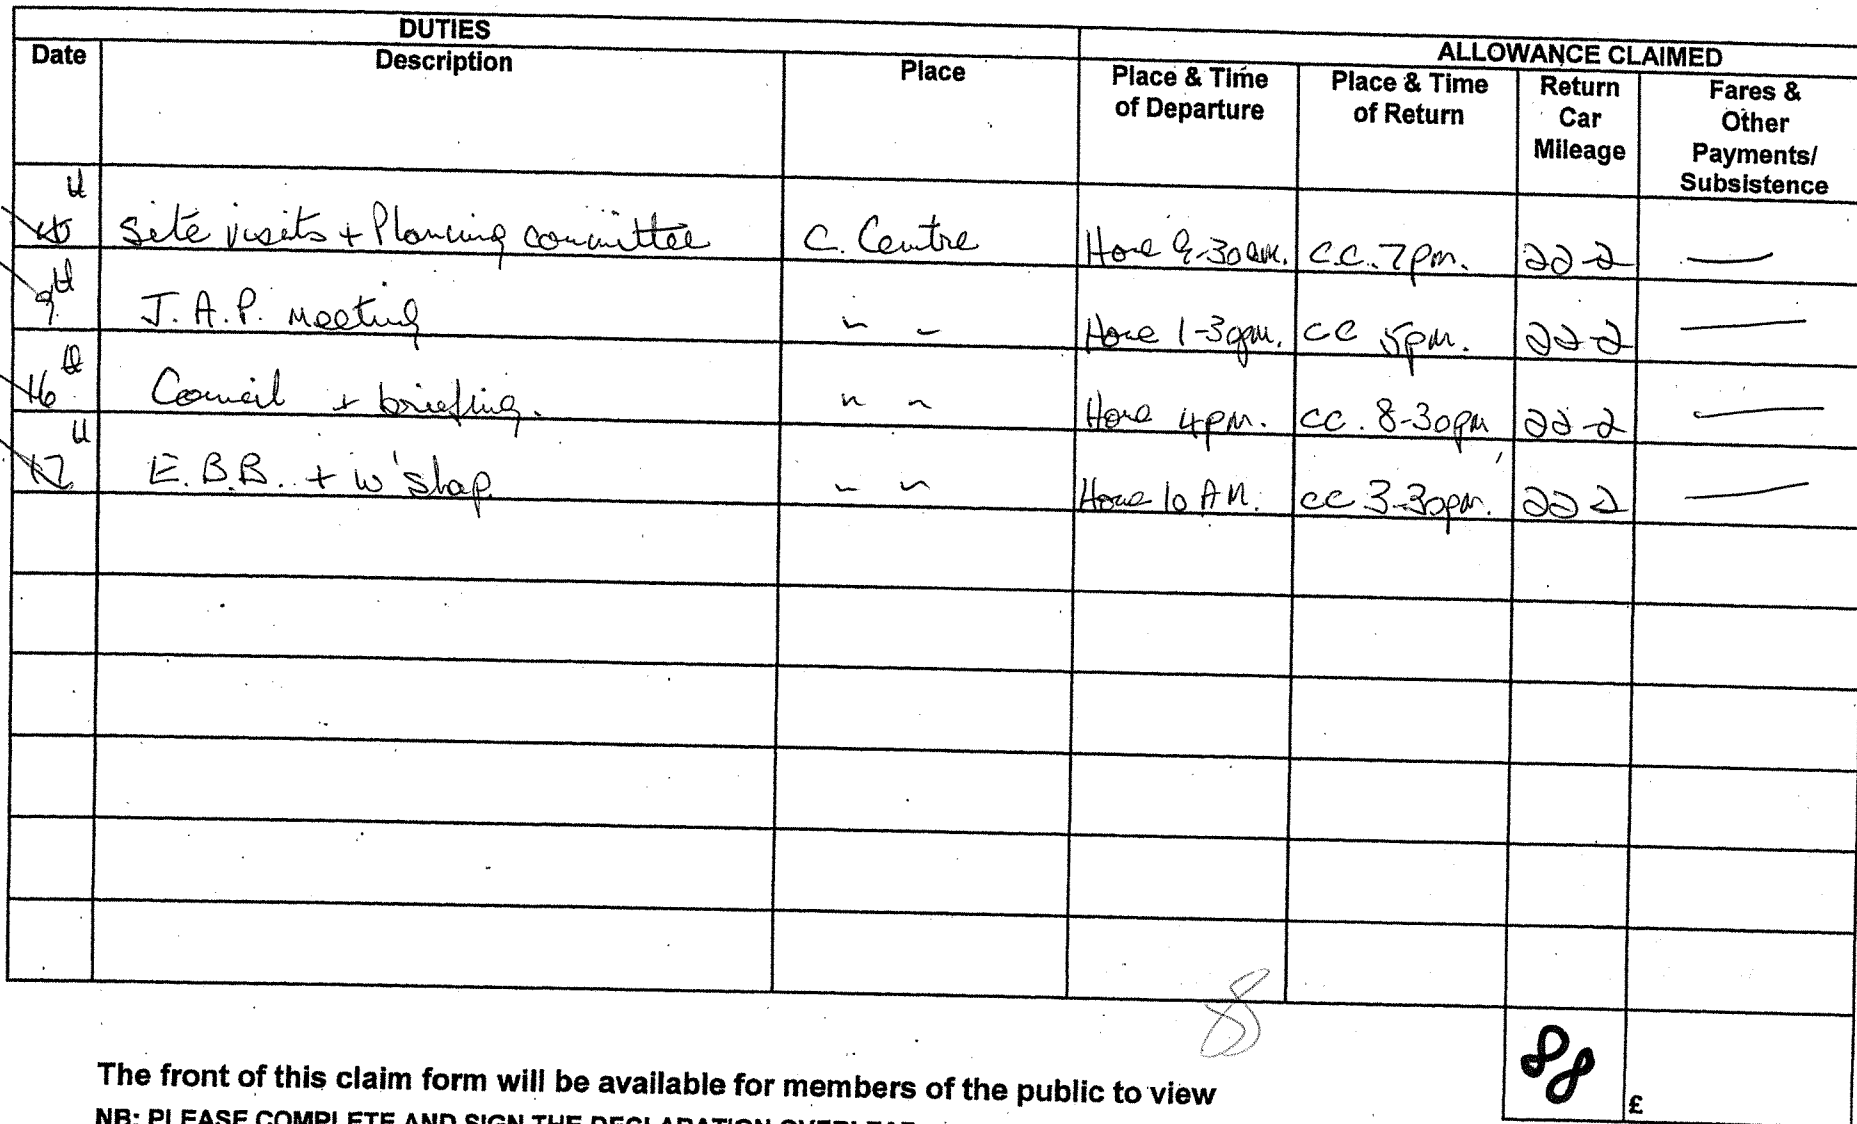 DUTIES
ALLOWANCE CLAIMED
Date Description Place Place & Time of Departure Place & Time of Return Return Car Mileage Fares & Other Payments/ Subsistence
site visits + Planning committee C. Centre Home 9-30am. C.C. 7pm. 22-2 —
9th J.A.P. meeting " " Home 1-30pm. CC 5pm. 22-2 —
16th Council + briefing. " " Home 4pm. CC. 8-30pm 22-2 —
17th E.B.B. + w'shop " " Home 10 AM. CC 3-30pm. 22 2 —
88
88 £
The front of this claim form will be available for members of the public to view
NB: PLEASE COMPLETE AND SIGN THE DECLARATION OVERLEAF